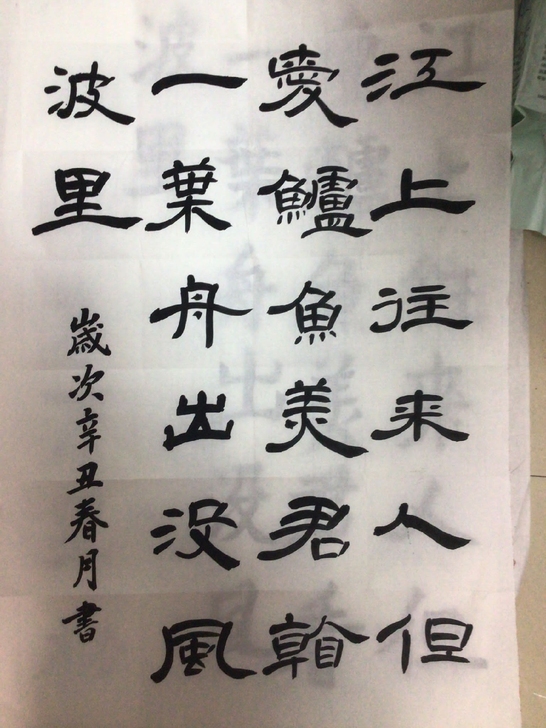 江上往来人但
愛鱸魚美君看
一葉舟出没風
波里
歲次辛丑春月書